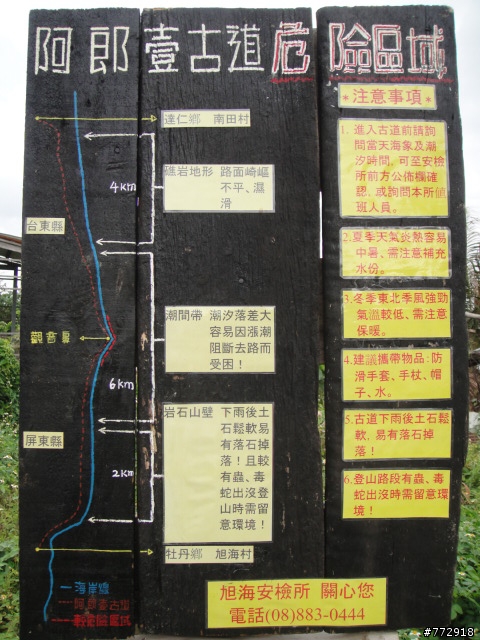 阿郎壹古道危險區域
達仁鄉 南田村
礁岩地形 路面崎嶇
不平、濕
滑
4km
台東縣
潮間帶 潮汐落差大
容易因漲潮
阻斷去路而
受困！
觀音鼻
6km
岩石山壁 下雨後土
石鬆軟易
有落石掉
落！且較
有蟲、毒
蛇出沒登
山時需留
意環境！
屏東縣
2km
牡丹鄉 旭海村
海岸線
阿郎壹古道
*注意事項*
1. 進入古道前請詢
問當天海象及潮
汐時間，可至安檢
所前方公佈欄確
認，或詢問本所值
班人員。
2.夏季天氣炎熱容易
中暑、需注意補充
水份。
3.冬季東北季風強勁
氣溫較低、需注意
保暖。
4.建議攜帶物品:防
滑手套、手杖、帽
子、水。
5.古道下雨後土石鬆
軟，易有落石掉
落！
6.登山路段有蟲、毒
蛇出沒時需留意環
境！
旭海安檢所 關心您
電話(08)883-0444
#772918